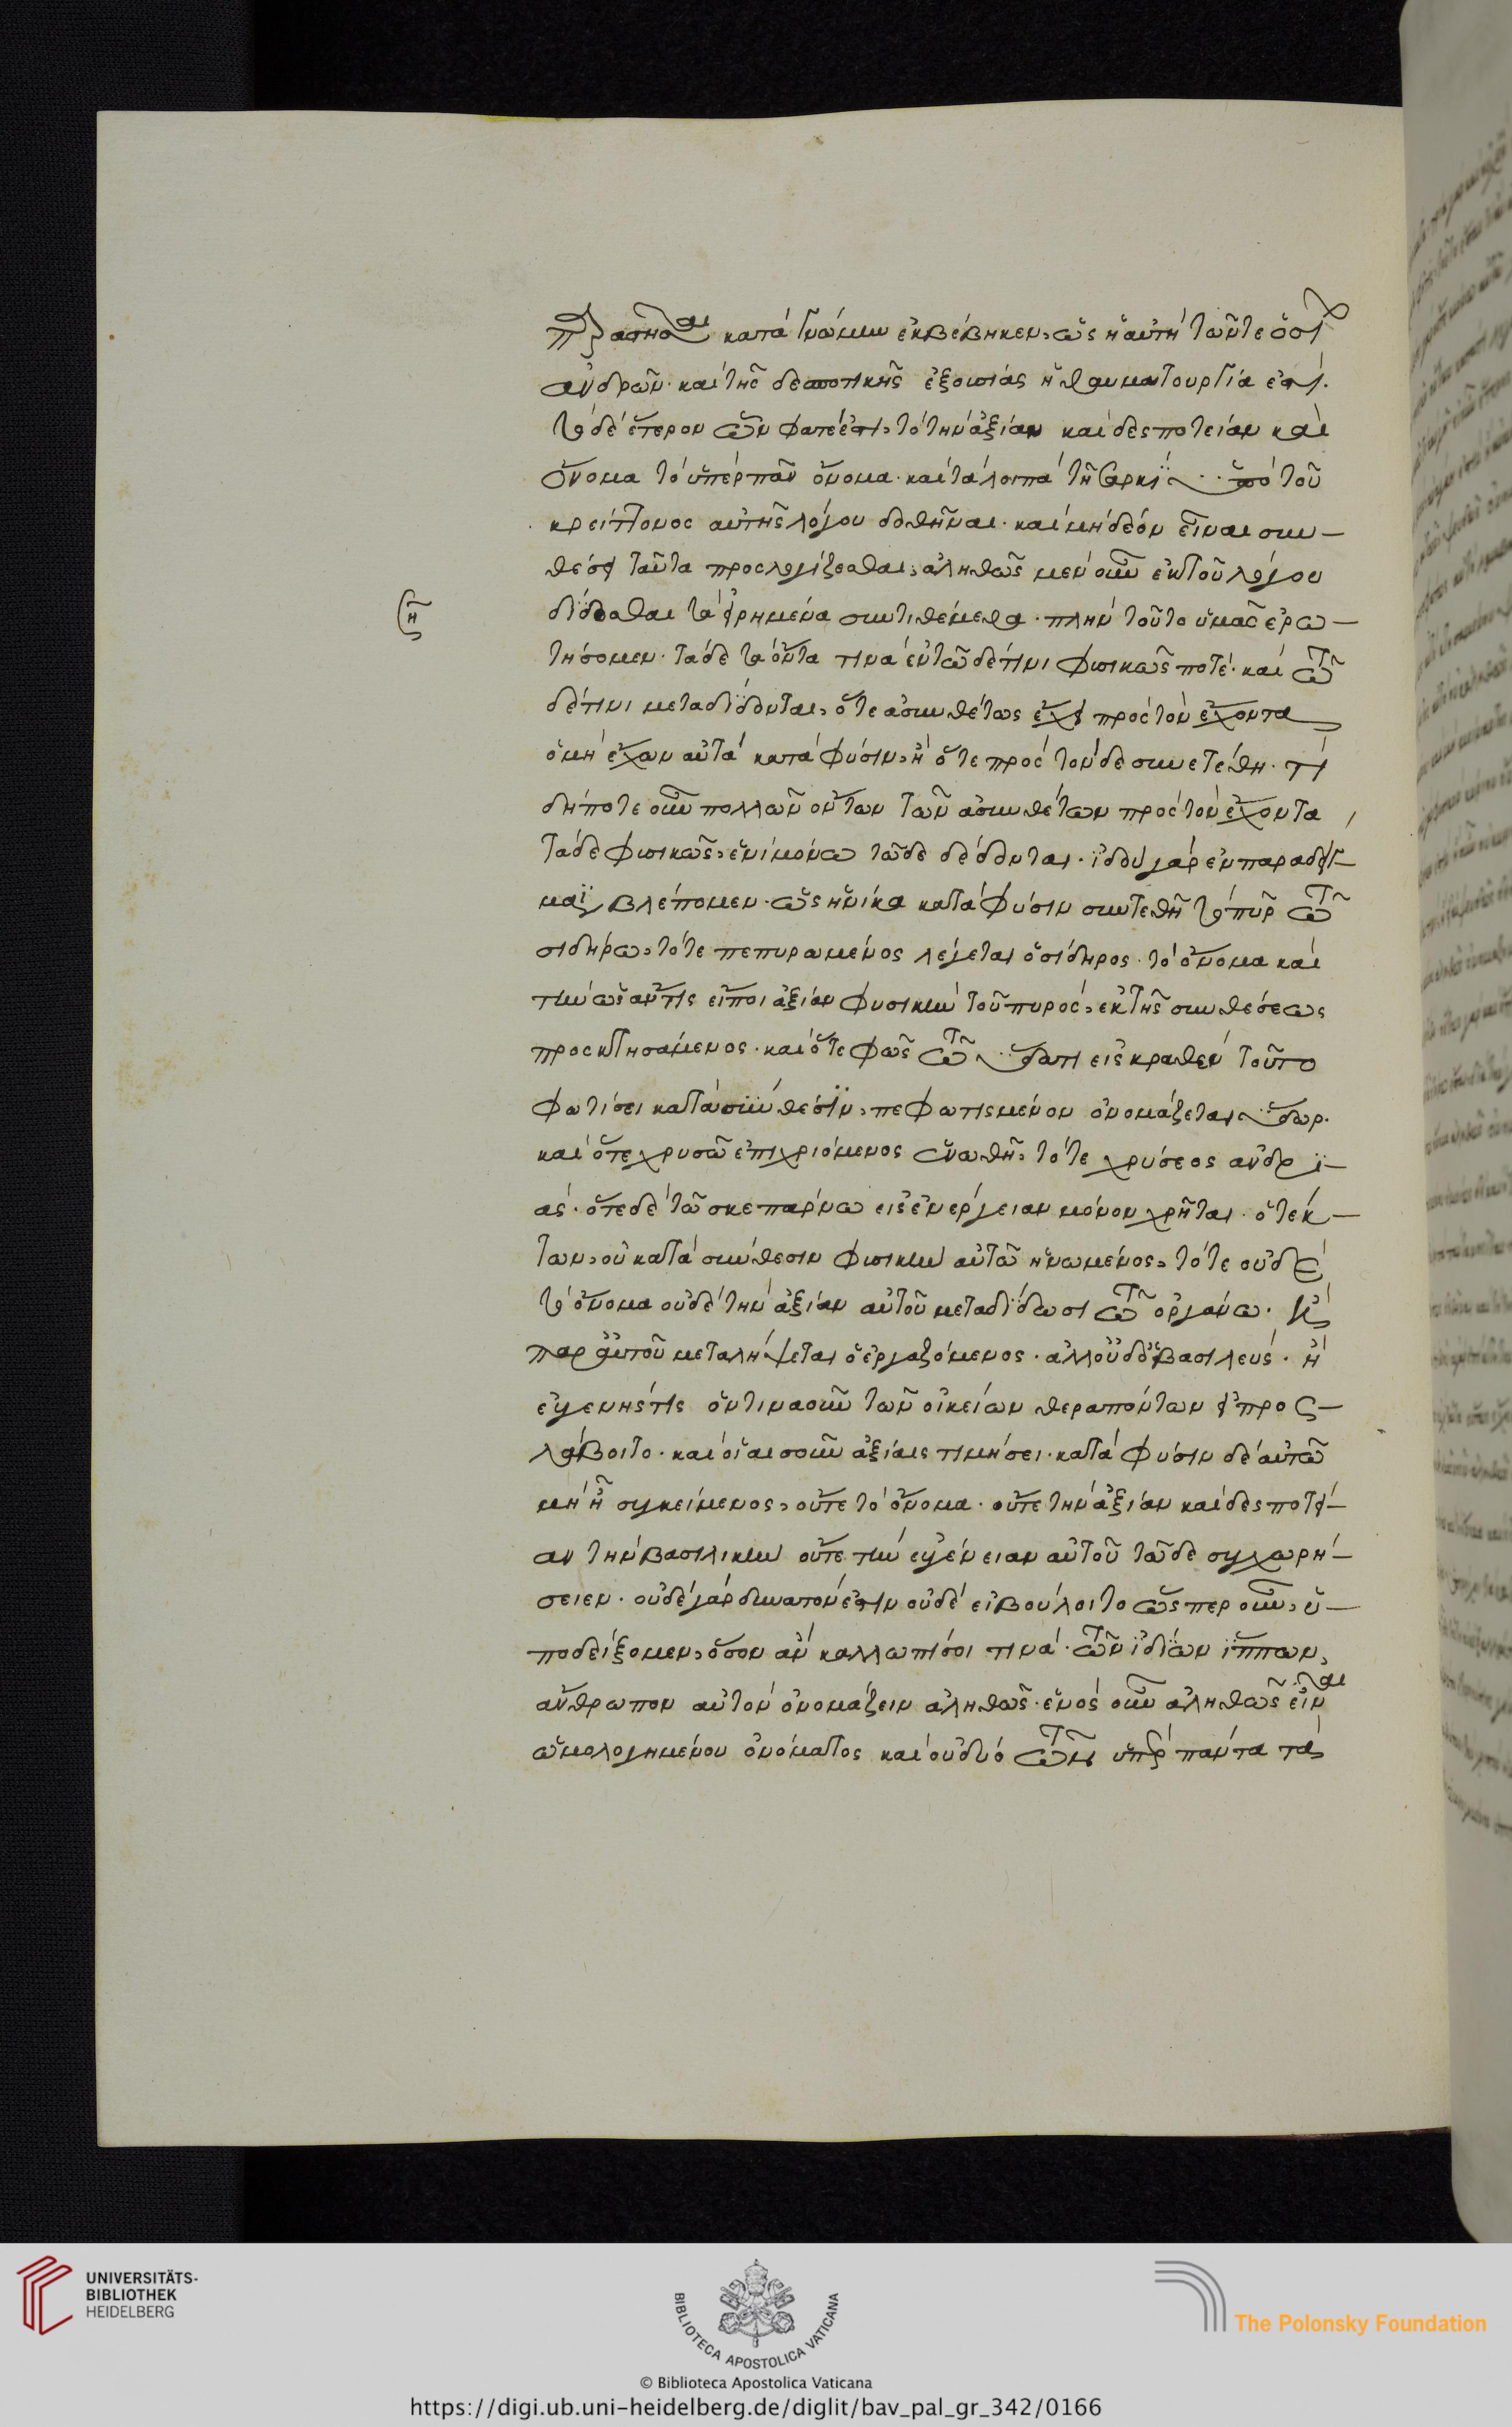 κατὰ γνώμην ἐκβέβηκεν, ὡς ἡ αὐτὴ τῶν τε
ἀνδρῶν· καὶ τῆς δεσποτικῆς ἐξουσίας ἡ θαυματουργία ἐστί.
τὸ δὲ ἕτερον ὧν φατέ ἐστι, τὸ τὴν ἀξίαν καὶ δεσποτείαν καὶ
ὄνομα τὸ ὑπὲρ πᾶν ὄνομα· καὶ τὰ λοιπὰ τῆ σαρκὶ ὑπὸ τοῦ
κρείττονος αὐτῆς λόγου δοθῆναι· καὶ μὴ δέον εἶναι συν-
θέσει ταῦτα προσλογίζεσθαι, ἀληθῶς μὲν οὖν ἐκ τοῦ λόγου
δίδοσθαι τὰ εἰρημένα συντιθέμεθα· πλὴν τοῦτο ὑμᾶς ἐρω-
τήσομεν· τάδε τὰ ὄντα τινὰ ἐν τῶδέ τινι φυσικῶς ποτέ· καὶ τῶ
δέ τινι μεταδίδονται, ὅτε ἀσυνθέτως ἔχει πρὸς τὸν ἔχοντα
ὁ μὴ ἔχων αὐτὰ κατὰ φύσιν, ἢ ὅτε πρὸς τόνδε συνετέθη· τί
δήποτε οὖν πολλῶν ὄντων τῶν ἀσυνθέτων πρὸς τὸν ἔχοντα
τάδε φυσικῶς, ἑνὶ μόνω τῶδε δέδονται· ἰδοὺ γὰρ ἐν παραδείγ-
μασι βλέπομεν· ὡς ἡνίκα κατὰ φύσιν συντεθῆ τὸ πῦρ τῶ
σιδήρω, τότε πεπυρωμένος λέγεται ὁ σίδηρος· τὸ ὄνομα καὶ
τὴν ὡς ἄν τις εἴποι ἀξίαν φυσικὴν τοῦ πυρὸς, ἐκ τῆς συνθέσεως
προσκτησάμενος· καὶ ὅτε φῶς τῶ ὕδατι εἰσκραθὲν τοῦτο
φωτίσει κατὰ σύνθεσιν, πεφωτισμένον ὀνομάζεται ὕδωρ.
καὶ ὅτε χρυσῶ ἐπιχριόμενος ἑνωθῆ, τότε χρύσεος ἀνδρι-
άς· ὅτε δὲ τῶ σκεπάρνω εἰς ἐνέργειαν μόνον χρῆται· ὁ τέκ-
των, οὐ κατὰ σύνθεσιν φυσικὴν αὐτῶ ἡνωμένος, τότε οὐδὲ
τὸ ὄνομα οὐδὲ τὴν ἀξίαν αὐτοῦ μεταδίδωσι τῶ ὀργάνω· καὶ
παρ' αὐτοῦ μεταλήψεται ὁ ἐργαζόμενος· ἀλλ' οὐδὲ βασιλεὺς· ἢ
εὐγενής τις ὅντινα οὖν τῶν οἰκείων θεραπόντων εἰ προσ-
λάβοιτο· καὶ οἵαις οὖν ἀξίαις τιμήσει· κατὰ φύσιν δὲ αὐτῶ
μὴ ἦ συγκείμενος, οὔτε τὸ ὄνομα· οὔτε τὴν ἀξίαν καὶ δεσποτεί-
αν τὴν βασιλικὴν οὔτε τὴν εὐγένειαν αὐτοῦ τῶδε συγχωρή-
σειεν· οὐδὲ γὰρ δυνατόν ἐστιν οὐδὲ εἰ βούλοιτο ὥσπερ οὖν, ὑ-
ποδείξομεν, ὅσον ἂν καλλωπίσοι τινὰ· τῶν ἰδίων ἵππων,
ἄνθρωπον αὐτὸν ὀνομάζειν ἀληθῶς· ἑνὸς οὖν ἀληθῶς εἶναι
ὡμολογημένου ὀνόματος καὶ οὐ δύο τῶν ὑπὲρ πάντα τὰ
UNIVERSITÄTS-
BIBLIOTHEK
HEIDELBERG
BIBLIOTECA APOSTOLICA VATICANA
The Polonsky Foundation
© Biblioteca Apostolica Vaticana
https://digi.ub.uni-heidelberg.de/diglit/bav_pal_gr_342/0166